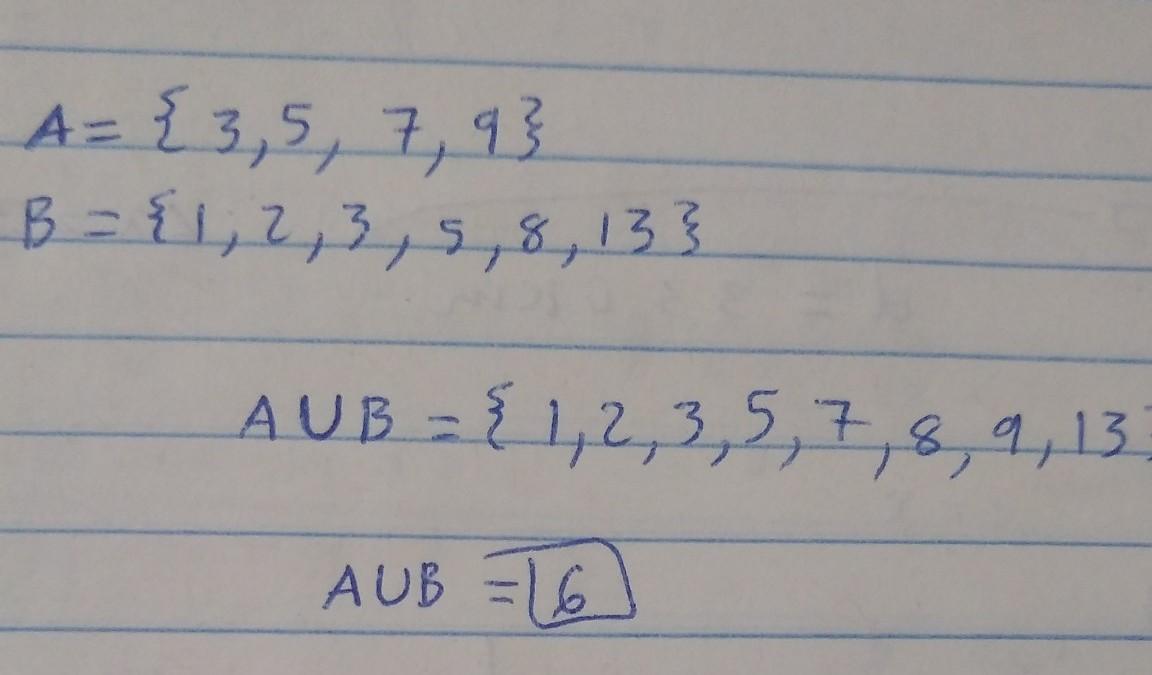 A = { 3, 5, 7, 9 }
B = { 1, 2, 3, 5, 8, 13 }
A U B = { 1, 2, 3, 5, 7, 8, 9, 13 }
A U B = 6